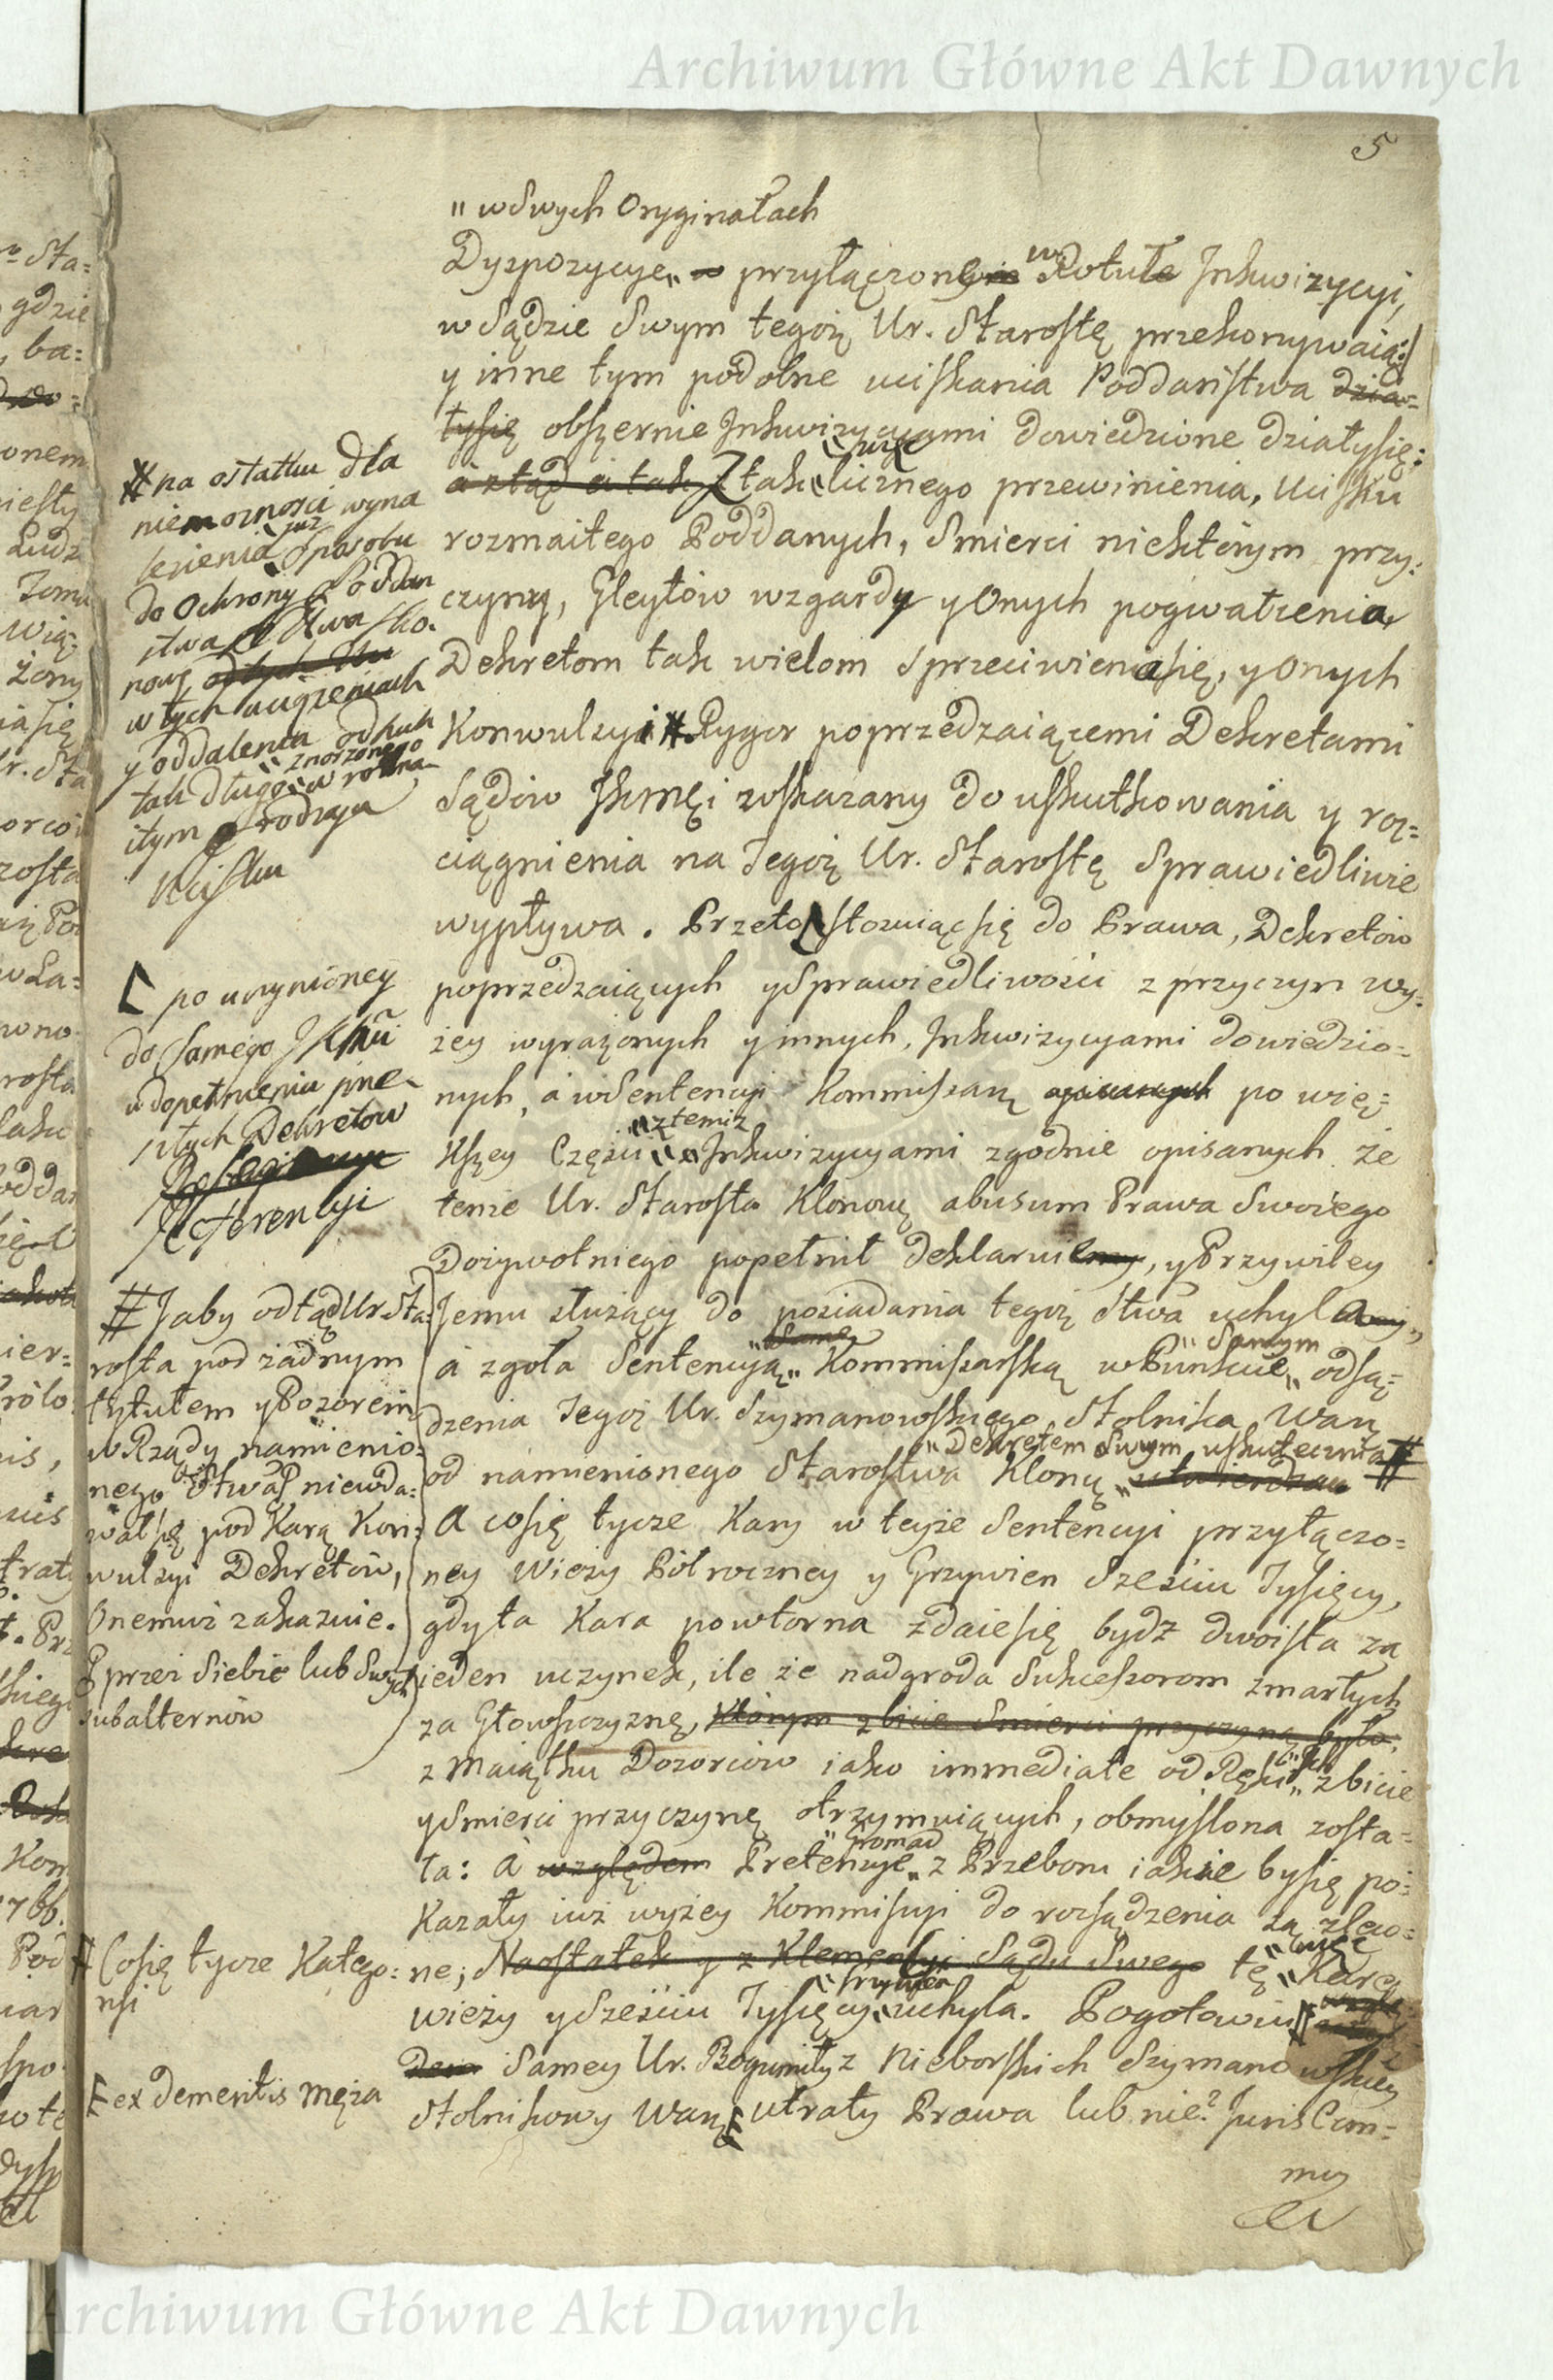 Archiwum Główne Akt Dawnych
5
" w Swych Oryginałach
Dyspozycye " przyłączone w Rotule Inkwizycyi,
w Sądzie Swym tegoż Ur. Starostę przekonywaią:
y inne tym podobne uciskania Poddaństwa dzia=
łysię obszernie Inkwizycyami dowiedzione działysię:
a ztąd a tak Z tak " już " licznego przewinienia, ucisku
rozmaitego Poddanych, Smierci niektórym przy:
czyny, Gleytów wzgardy y Onych pogwałcenia,
Dekretom tak wielom Sprzeciwieniasię, y Onych
Konwulsyi # Rygor poprzedzaiącemi Dekretami
Sądów Jkmći wskazany do uskutkowania y roz=
ciągnienia na Tegoż Ur. Starostę Sprawiedliwie
wypływa. Przeto [ stosuiąc się do Prawa, Dekretów
poprzedzaiących y Sprawiedliwości z przyczyn wy:
żey wyrażonych y innych, Inkwizycyami dowiedzio=
nych, a w Sentencyi Kommissarz opisanych po wię=
kszey Części " z temiż " Inkwizycyami zgodnie opisanych że
tenże Ur. Starosta Klonowz abusum Prawa Swoiego
Dożywotniego popełnił deklaruie, y Przywiley
Jemu służący do posiadania tegoż Stwa uchyla,
á zgoła Sentencyą " Same " Kommissarską w Punkcie " Samym " odsą=
dzenia Tegoż Ur. Szymanowskiego Stolnika Warz
od namienionego Starostwa Klonz " Dekretem Swym uskutecznia #
A cosię tycze Kary w teyże Sentencyi przyłączo=
ney Wieży Półroczney y Grzywien Sześciu Tysięcy,
gdy ta Kara powtorna zdaiesię bydź dwoista za
ieden uczynek, ile że nadgroda Sukcessorom zmarłych
za Głowszczyznę, Którym zbicie Smierci przyczyną było,
z Maiątku Dozorców iako immediate od Ręki " ich " zbicie
y Smierci przyczynę otrzymuiących, obmyślona zosta=
ła: A względem Pretensye " Gromad " z Przeboru iakie bysię po=
kazały iuż wyżey Kommissyi do rozsądzenia są zleco=
ne; Naostatek y z Klemencyi Sądu Swego tę " więc " Karę
wieży y Sześciu Tysięcy " Grzywien " uchyla. Pogotowiu #
Samey Ur. Bogumiły z Nieborskich Szymanowskiey
Stolnikowy Warz utraty Prawa lub nie? Juris Com=
mu
# na ostatku dla
niemożności wyna
lezienia " już " Sposobu
do Ochrony Poddan
stwa Stwa Klo.
nowz
w tych uciążeniach
y oddalenia odkuk
tak długo " znoszonego " w rozma
itym rodzaju
Ucisku
[ po uczynioney
do Samego JKMći
udopełnieniu prze
szłych Dekretów
Referencyi
# Jaby odtąd Ur Sta=
rosta pod żadnym
tytułem y Pozorem
w Rządy namienio=
nego Stwa niewda=
wał się pod Karą Kon=
wulsyi Dekretów,
Onemuż zakazuie.
przez Siebie lub Swych
Subalternów
# Cosię tycze Katego=
ryi
ex demeritis Męża
Archiwum Główne Akt Dawnych